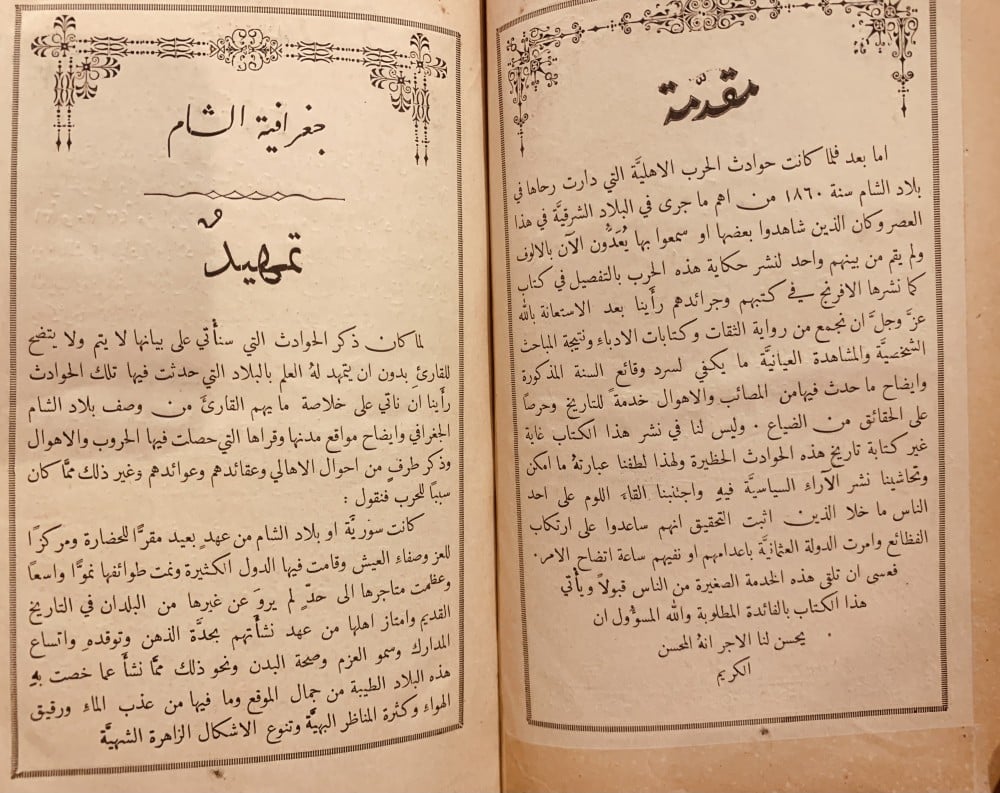 مقدّمة
اما بعد فلما كانت حوادث الحرب الاهليَّة التي دارت رحاها في
بلاد الشام سنة ١٨٦٠ من اهم ما جرى في البلاد الشرقيَّة في هذا
العصر وكان الذين شاهدوا بعضها او سمعوا بها يُعَدُّون الآن بالالوف
ولم يقم من بينهم واحد لنشر حكاية هذه الحرب بالتفصيل في كتاب
كما نشرها الافرنج في كتبهم وجرائدهم رأَينا بعد الاستعانة بالله
عزَّ وجلَّ ان نجمع من رواية الثقات وكتابات الادباء ونتيجة المباحث
الشخصيَّة والمشاهدة العيانيَّة ما يكفي لسرد وقائع السنة المذكورة
وايضاح ما حدث فيها من المصائب والاهوال خدمةً للتاريخ وحرصاً
على الحقائق من الضياع . وليس لنا في نشر هذا الكتاب غاية
غير كتابة تاريخ هذه الحوادث الخطيرة ولهذا لطفنا عبارتهُ ما امكن
وتحاشينا نشر الآراء السياسيَّة فيهِ واجتنبنا القاء اللوم على احد
الناس ما خلا الذين اثبت التحقيق انهم ساعدوا على ارتكاب
الفظائع وامرت الدولة العثمانيَّة باعدامهم او نفيهم ساعة اتضاح الامر .
فعسى ان تلقى هذه الخدمة الصغيرة من الناس قبولاً ويأْتي
هذا الكتاب بالفائدة المطلوبة والله المسؤُول ان
يحسن لنا الاجر انهُ المحسن
الكريم
جغرافية الشام
تمهيدٌ
لما كان ذكر الحوادث التي سنأْتي على بيانها لا يتم ولا يتضح
للقارئ بدون ان يتمهد لهُ العلم بالبلاد التي حدثت فيها تلك الحوادث
رأَينا ان ناتي على خلاصة ما يهم القارئَ من وصف بلاد الشام
الجغرافي وايضاح مواقع مدنها وقراها التي حصلت فيها الحروب والاهوال
وذكر طرفٍ من احوال الاهالي وعقائدهم وعوائدهم وغير ذلك ممَّا كان
سبباً للحرب فنقول :
كانت سوريَّة او بلاد الشام من عهدٍ بعيد مقرًّا للحضارة ومركزاً
للعز وصفاءِ العيش وقامت فيها الدول الكثيرة ونمت طوائفها نموًّا واسعاً
وعظمت متاجرها الى حدٍّ لم يروَ عن غيرها من البلدان في التاريخ
القديم وامتاز اهلها من عهد نشأَتهم بحدَّة الذهن وتوقده واتساع
المدارك وسمو العزم وصحة البدن ونحو ذلك ممَّا نشأَ عما خصت بهِ
هذه البلاد الطيبة من جمال الموقع وما فيها من عذب الماءِ ورقيق
الهواءِ وكثرة المناظر البهيَّة وتنوع الاشكال الزاهرة الشهيَّة